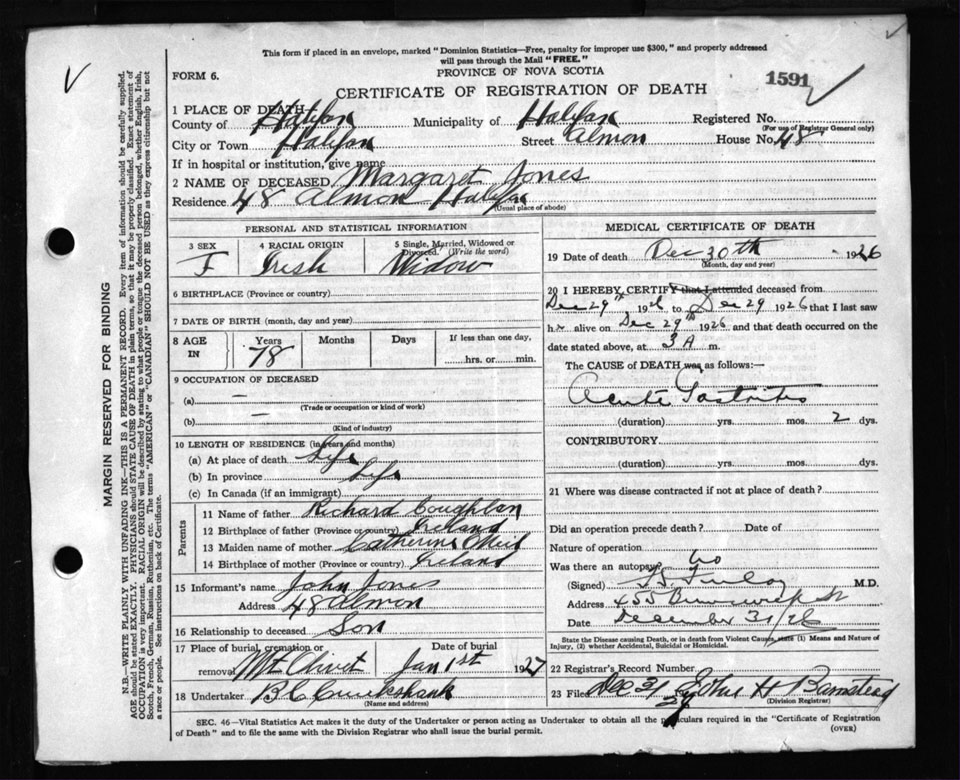 This form if placed in an envelope, marked "Dominion Statistics—Free, penalty for improper use $300," and properly addressed
will pass through the Mail "FREE."
FORM 6.
PROVINCE OF NOVA SCOTIA
1591
CERTIFICATE OF REGISTRATION OF DEATH
1 PLACE OF DEATH
County of Halifax Municipality of Halifax Registered No.
(For use of Registrar General only)
City or Town Halifax Street Almon House No. 48
If in hospital or institution, give name
2 NAME OF DECEASED Margaret Jones
Residence 48 Almon Halifax
(Usual place of abode)
PERSONAL AND STATISTICAL INFORMATION
3 SEX F
4 RACIAL ORIGIN Irish
5 Single, Married, Widowed or Divorced. (Write the word) Widow
6 BIRTHPLACE (Province or country)
7 DATE OF BIRTH (month, day and year)
8 AGE IN Years Months Days If less than one day,
78 hrs. or min.
9 OCCUPATION OF DECEASED
(a) —
(Trade or occupation or kind of work)
(b) —
(Kind of industry)
10 LENGTH OF RESIDENCE (in years and months)
(a) At place of death Life
(b) In province Life
(c) In Canada (if an immigrant)
Parents
11 Name of father Richard Coughlan
12 Birthplace of father (Province or country) Ireland
13 Maiden name of mother Catherine O'Neil
14 Birthplace of mother (Province or country) Ireland
15 Informant's name John Jones
Address 48 Almon
16 Relationship to deceased Son
17 Place of burial, cremation or removal Mt Olivet
Date of burial Jan 1st 1927
18 Undertaker B C Cruikshank
(Name and address)
MEDICAL CERTIFICATE OF DEATH
19 Date of death Dec 30th 1926
(Month, day and year)
20 I HEREBY CERTIFY that I attended deceased from
Dec 29th 1926 to Dec 29 1926 that I last saw
her alive on Dec 29th 1926 and that death occurred on the
date stated above, at 3 A m.
The CAUSE OF DEATH was as follows:—
Acute Gastritis
(duration) yrs. mos. 2 dys.
CONTRIBUTORY
(duration) yrs. mos. dys.
21 Where was disease contracted if not at place of death?
Did an operation precede death? Date of
Nature of operation
Was there an autopsy? No
(Signed) M.D.
Address 455 Brunswick St
Date December 31/26
State the Disease causing Death, or in death from Violent Causes, state (1) Means and Nature of
Injury, (2) whether Accidental, Suicidal or Homicidal.
22 Registrar's Record Number
23 Filed Dec 31 John H Barnstead
(Division Registrar)
SEC. 46—Vital Statistics Act makes it the duty of the Undertaker or person acting as Undertaker to obtain all the particulars required in the "Certificate of Registration
of Death" and to file the same with the Division Registrar who shall issue the burial permit.
(OVER)
MARGIN RESERVED FOR BINDING
N.B.—WRITE PLAINLY WITH UNFADING INK—THIS IS A PERMANENT RECORD. Every item of information should be carefully supplied.
AGE should be stated EXACTLY. PHYSICIANS should STATE CAUSE OF DEATH in plain terms, so that it may be properly classified. Exact statement of
OCCUPATION is very important. RACIAL ORIGIN will be described by stating to what people or tongue the deceased person belonged, whether English, Irish,
Scotch, French, German, Russian, Ruthenian, etc. The terms "AMERICAN" or "CANADIAN" SHOULD NOT BE USED as they express citizenship but not
a race or people. See instructions on back of Certificate.